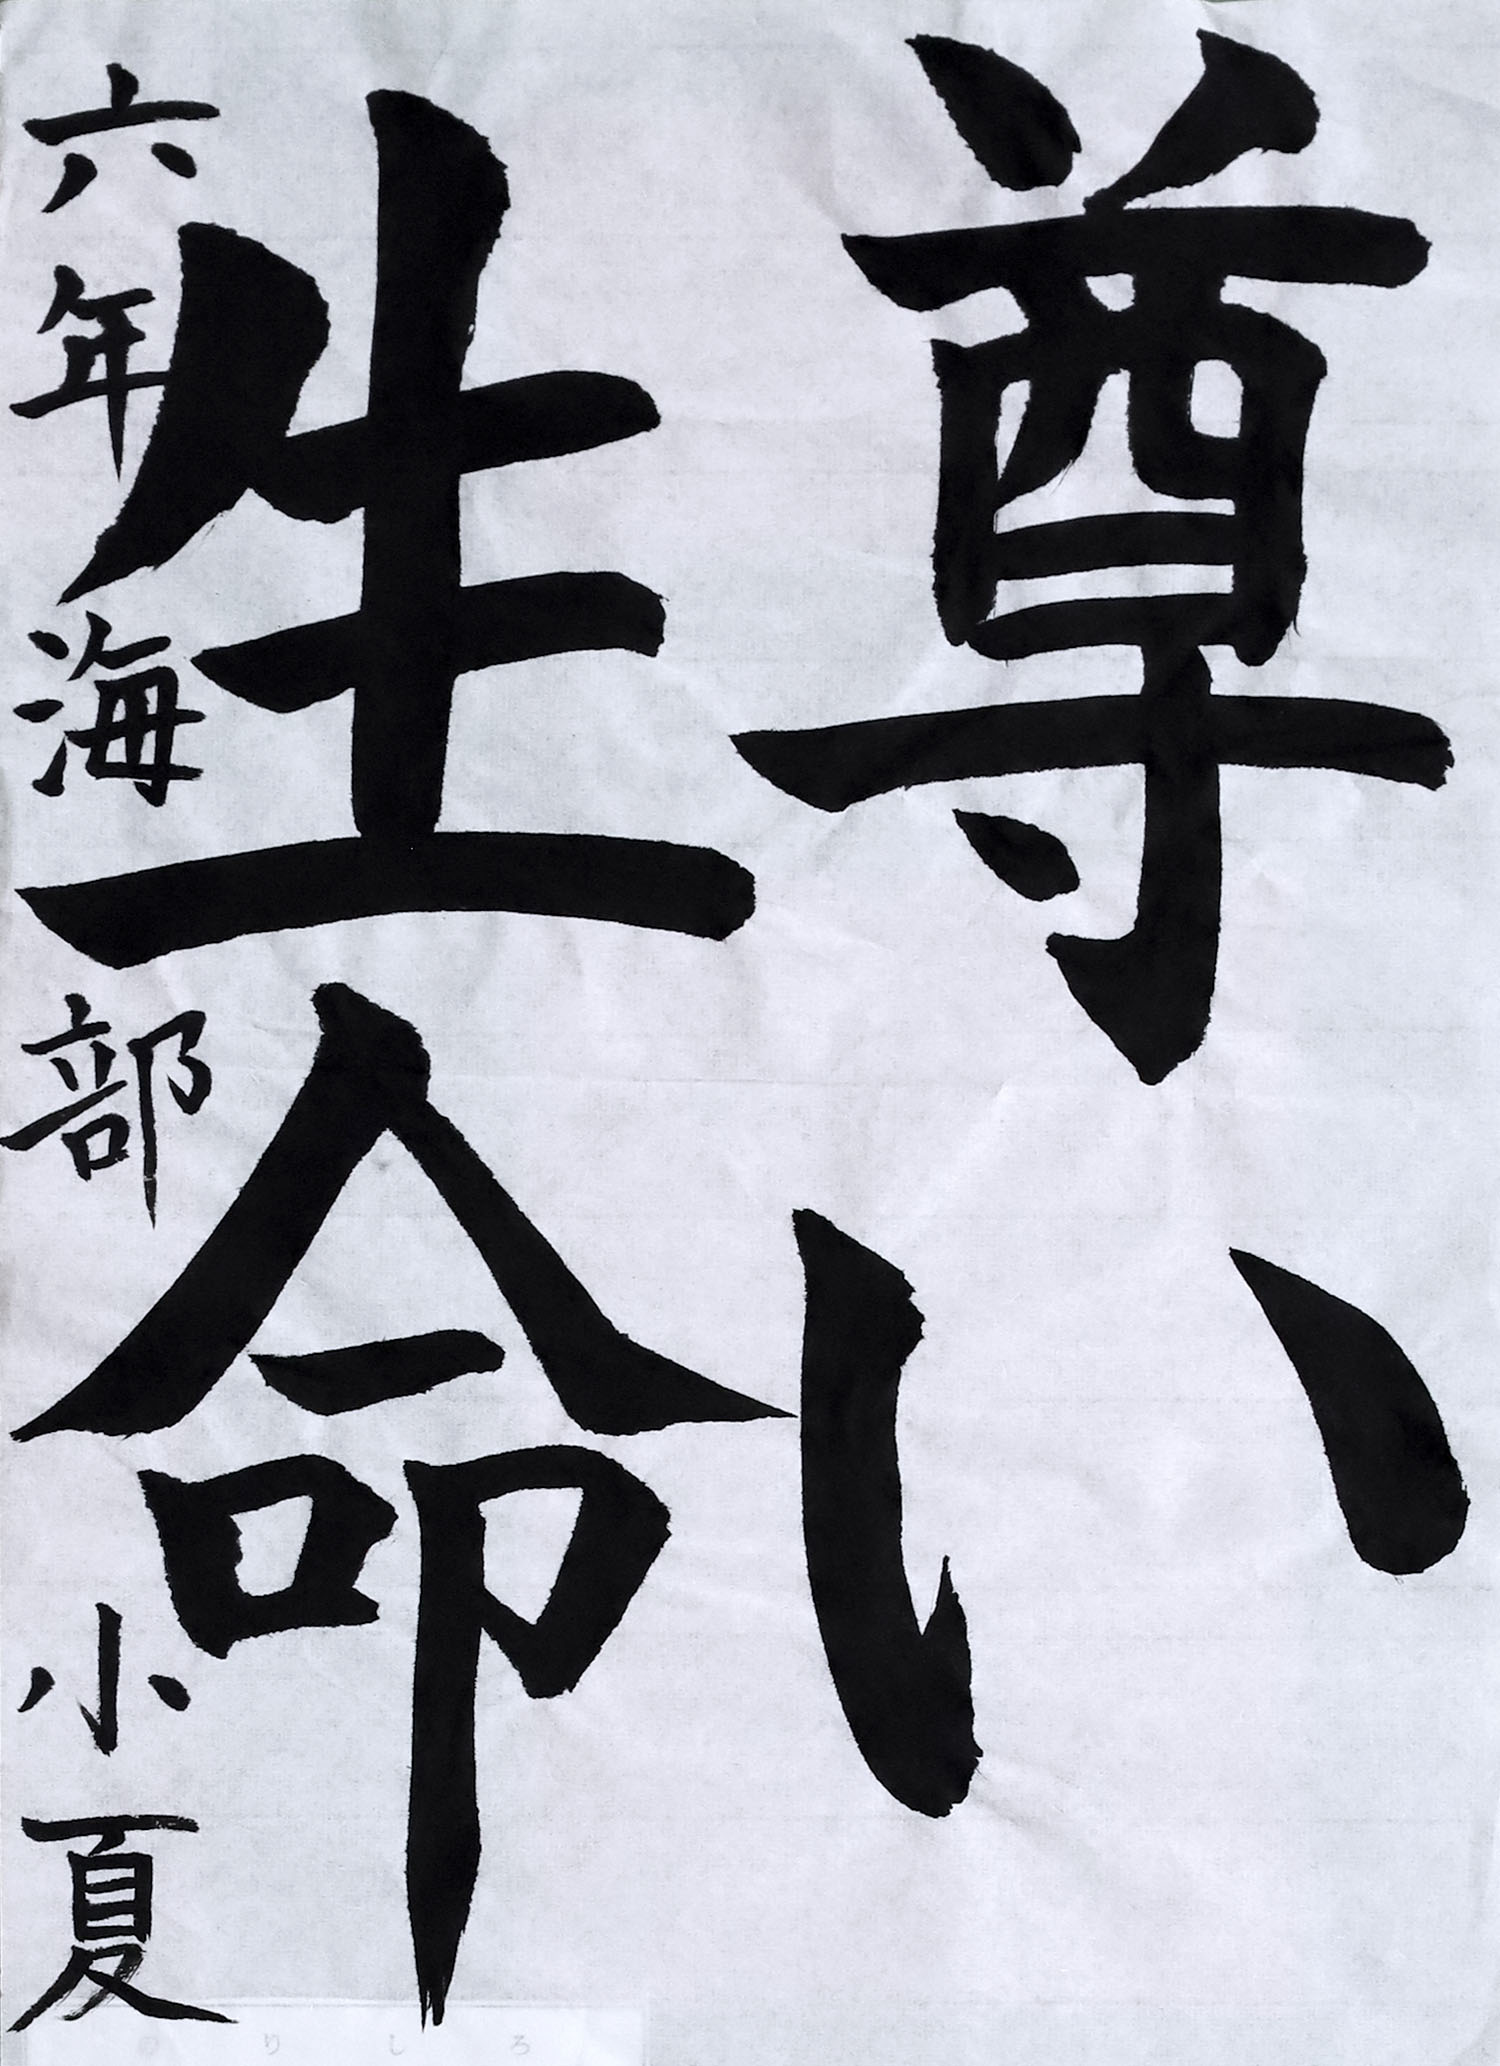 尊い
生命
六年 海部 小夏
のりしろ